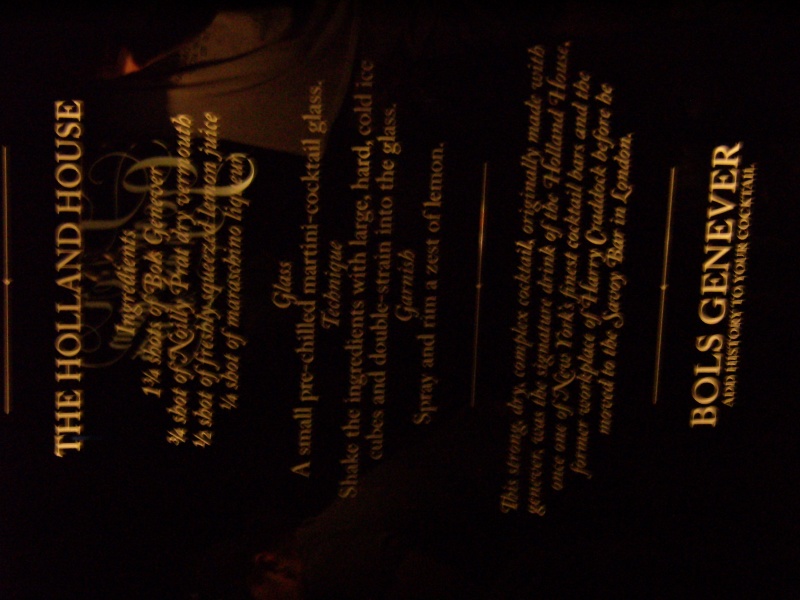 THE HOLLAND HOUSE
Ingredients
1¾ shot of Bols Genever
¾ shot of Noilly Prat dry vermouth
½ shot of freshly-squeezed lemon juice
¼ shot of maraschino liqueur
Glass
A small pre-chilled martini-cocktail glass.
Technique
Shake the ingredients with large, hard, cold ice
cubes and double-strain into the glass.
Garnish
Spray and rim a zest of lemon.
This strong, dry, complex cocktail, originally made with
genever, was the signature drink of the Holland House,
once one of New York's finest cocktail bars and the
former workplace of Harry Craddock before he
moved to the Savoy Bar in London.
BOLS GENEVER
ADD HISTORY TO YOUR COCKTAIL